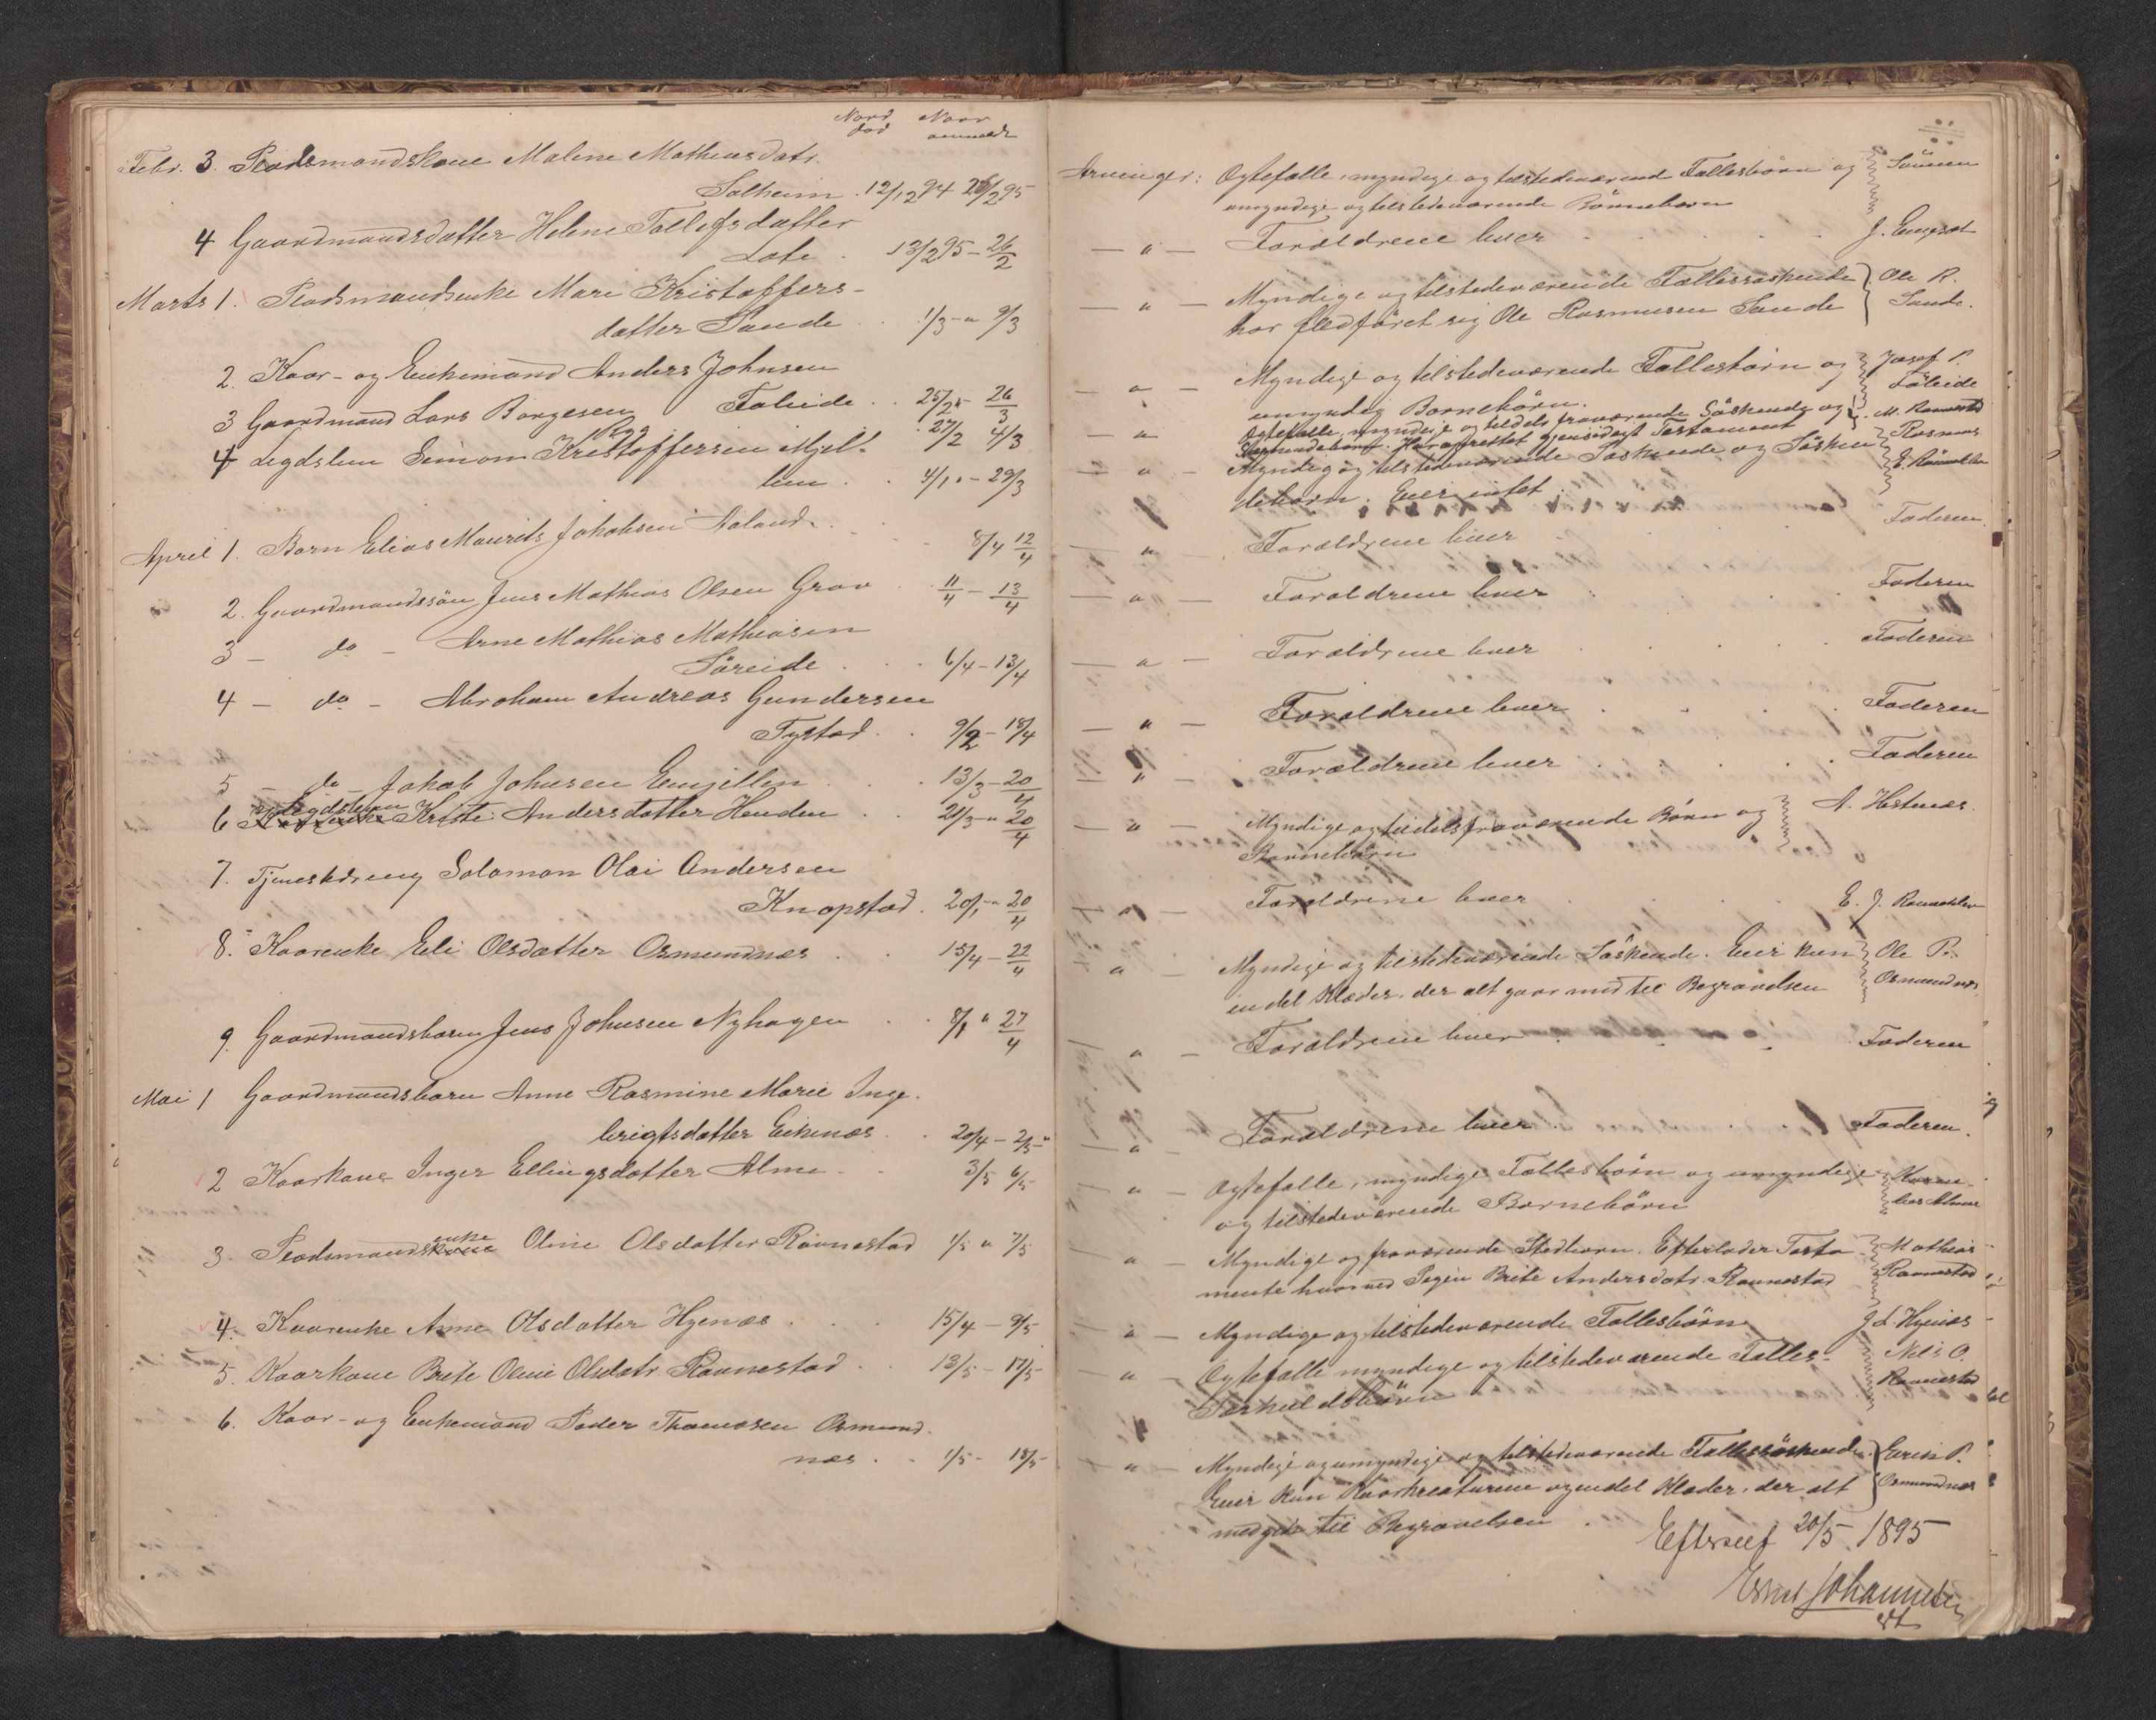 Naar død Naar anmeldt
Febr. 3. Pladsmandskone Malene Mathiasdatr.
Solheim . 12/12 94 26/2 95
4 Gaardmandsdatter Helene Tollefsdatter
Lote . 13/2 95 – 26/2
Marts 1. Pladsmandsenke Mari Kristoffers-
datter Sande . . 1/3 – " 9/3
2. Kaar- og Enkemand Anders Johnsen
. . 26/3
3 Gaardmand Lars Børgesen Rygg . 27/2 4/3
4 Legdslem Simon Kristoffersen Mjel-
lem . . 4/1 " – 29/3
April 1. Barn Elias Mauritz Jakobsen Aaland . . . 8/4 12/4
2. Gaardmandssøn Jens Mathias Olsen Grov . 11/4 – 13/4
3 – do – Arne Mathias Mathiasen
Søreide . . . 6/4 – 13/4
4 – do – Abraham Andreas Gundersen
Tystad . . 9/2 – 18/4
5 – do – Jakob Johnsen . . 13/3 – 20/4
6 Legdslem Kristi Andersdatter Henden . . 21/3 " 20/4
7. Tjenestedreng Salamon Olai Andersen
Knapstad . 20/1 – " 20/4
8. Kaarenke Eli Olsdatter Osmundnæs . . 15/4 – 22/4
9. Gaardmandsbarn Jens Johnsen Nyhagen . . 8/1 " 27/4
Mai 1 Gaardmandsbarn Anne Rasmine Marie Inge-
brigtsdatter Eikenæs . . 20/4 – 2/5 "
2 Kaarkone Inger Ellingsdatter Alme . . 3/5 6/5
3. Pladsmandskone enke Oline Olsdatter Ravnestad 1/5 " 7/5
4. Kaarenke Anne Olsdatter Hyenæs . . . 15/4 – 9/5
5. Kaarkone Brite Oline Olsdatr. Ravnestad . . 13/5 – 17/5
6. Kaar- og Enkemand Peder Thomassen Osmund-
næs . . 1/5 – 18/5
Arvinger: Ægtefælle, myndige og tilstedeværende Fællesbørn og Sønnen
umyndige og tilstedeværende Børnebørn
– " – Forældrene lever . . . . J.
– " – Myndige og tilstedeværende Fællessøskende Ole R.
har fledført sig Ole Rasmussen Sande Sande.
– " – Myndige og tilstedeværende Fællesbørn og Josef P.
umyndig Barnebørn.
– " – Ægtefælle, myndige og tildels fraværende Søskende og M. Ravnestad
Søskendebørn. Har oprettet gjensidigt Testament
– " – Myndig og tilstedeværende Søskende og Søsken- Rasmus
debørn. Eier intet.
– " – Forældrene lever Faderen.
– " – Forældrene lever . . . Faderen
– " – Forældrene lever . . . Faderen
– " – Forældrene lever . . . Faderen
– " – Forældrene lever . . . Faderen
– " – Myndige og tildels fraværende Børn og A. Hestnæs.
Børnebørn
– " – Forældrene lever . . E. J.
" – Myndige og tilstedeværende Søskende. Eier kun Ole P.
endel Klæder, der alt gaar med til Begravelsen Osmundnæs
" – Forældrene lever . . . Faderen
" – Forældrene lever . Faderen.
" – Ægtefælle, myndige Fællesbørn og umyndige
og tilstedeværende Børnebørn
" – Myndige og fraværende Stedbørn. Efterlader Testa- Mathias
mente hvorved Pigen Brite Andersdatr. Ravnestad Ravnestad
" – Myndige og tilstedeværende Fællesbørn J L. Hyenæs
– " – Ægtefælle myndige og tilstedeværende Fælles- Nils O.
Særkuldsbørn Ravnestad
" – Myndige og umyndige og tilstedeværende Fællessøskende. P.
Eier kun Kaarkreaturene og endel Klæder, der alt Osmundnæs
medgik til Begravelsen .
Efterseet 20/5 1895
Johannessen